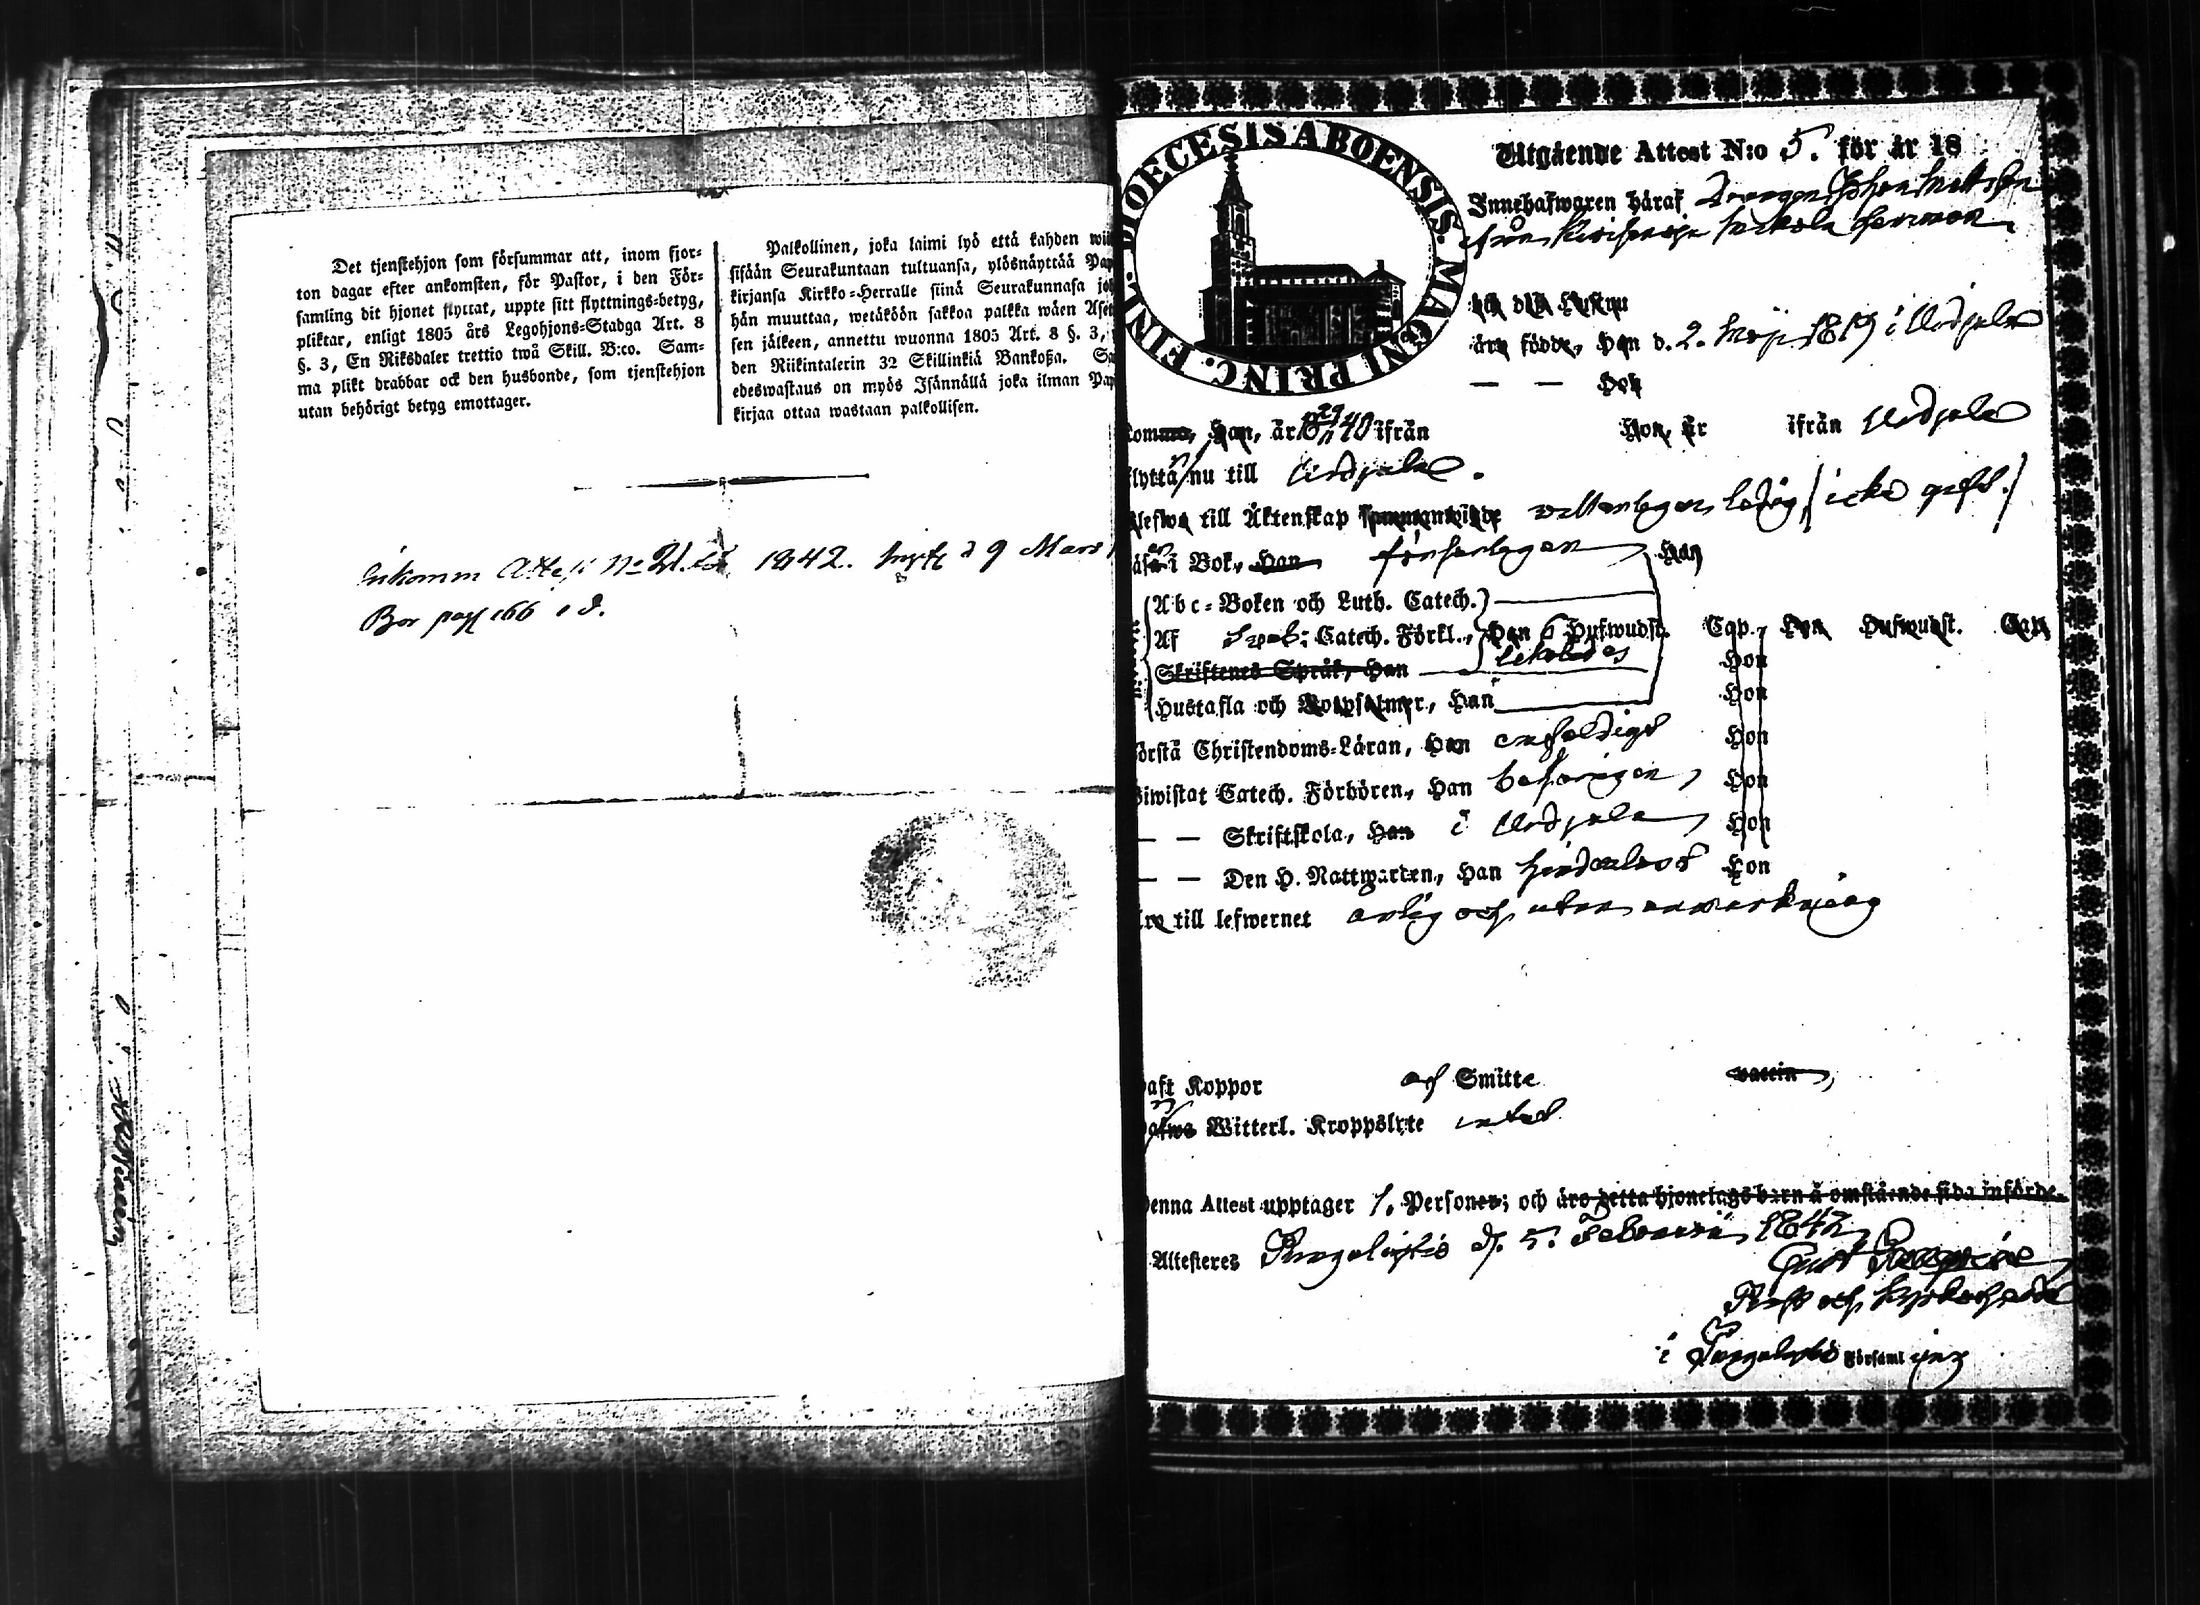 Det tjenstehjon som försummar att, inom fjor-
ton dagar efter ankomsten, för Pastor, i den För-
samling dit hjonet flyttat, uppte sitt flyttnings-betyg,
pliktar, enligt 1805 års Legohjons-Stadga Art. 8
§. 3, En Riksdaler trettio twå Skill. B:co. Sam-
ma plikt drabbar ock den husbonde, som tjenstehjon
utan behörigt betyg emottager.
Palkollinen, joka laimi lyö että kahden wii
sisään Seurakuntaan tultuansa, ylösnäyttää Pap
kirjansa Kirkko-Herralle siinä Seurakunnasa jo
hän muuttaa, wetäköön sakkoa palkka wäen Aset
sen jälkeen, annettu wuonna 1805 Art. 8 §. 3,
den Riikintalerin 32 Skillinkiä Bankoßa. Sa
edeswastaus on myös Isännällä joka ilman Pap
kirjaa ottaa wastaan palkollisen.
Inkomm Attest No 21. 1842. d 9 Mars
Bor pag 166 i d.
DIOECESIS ABOENSIS. MAGNI PRINC. FINL.
Utgående Attest N:o 5. för år 18
Innehafwaren häraf Drängen Johan Mattsson
från
och dess Hustru
äro födde, Han d. 2. Maji 1819 i Urdjala
— — Hon
komma, Han, är 18 29/11 40 ifrån Hon, är ifrån Urdjala
flytta nu till Urdjala.
Blefwa till Äktenskap wällofligen ledig (icke gift.)
Läsa i Bok, Han försvarligen Hon
Abc-Boken och Luth. Catech.
Af Sveb: Catech. Förkl., Han 6 Hufwudst. Cap. Hon Hufwudst. Cap.
Skriftenes Språk, Han Hon
Hustafla och Botpsalmer, Han Hon
förstå Christendoms-Läran, Han enfaldigt Hon
Biwistat Catech. Förhören, Han behörigen, Hon
— — Skriftskola, Han i Urdjala, Hon
— — Den H. Nattwarden, Han hinderlöst Hon
äro till lefwernet ärlig och utan anmärkning
haft Koppor af Smitta vaccin,
hafwa Witterl. Kroppslyte intet
Denna Attest upptager 1. Personer; och äro detta hjonelags barn å omstående sida införde.
Attesteres Pungalaitio d. 5. Februarii 1842
Gust
Past och Kyrkoherde
i Pungalaitio Församling